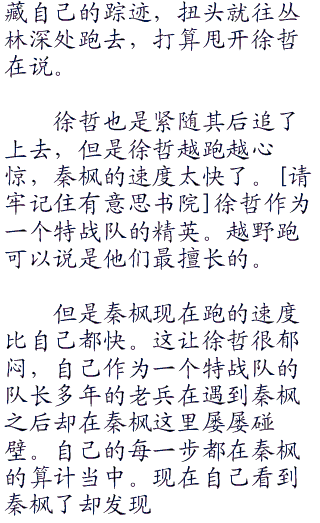 藏自己的踪迹，扭头就往丛
林深处跑去，打算甩开徐哲
在说。
徐哲也是紧随其后追了
上去，但是徐哲越跑越心
惊，秦枫的速度太快了。[请
牢记住有意思书院]徐哲作为
一个特战队的精英。越野跑
可以说是他们最擅长的。
但是秦枫现在跑的速度
比自己都快。这让徐哲很郁
闷，自己作为一个特战队的
队长多年的老兵在遇到秦枫
之后却在秦枫这里屡屡碰
壁。自己的每一步都在秦枫
的算计当中。现在自己看到
秦枫了却发现